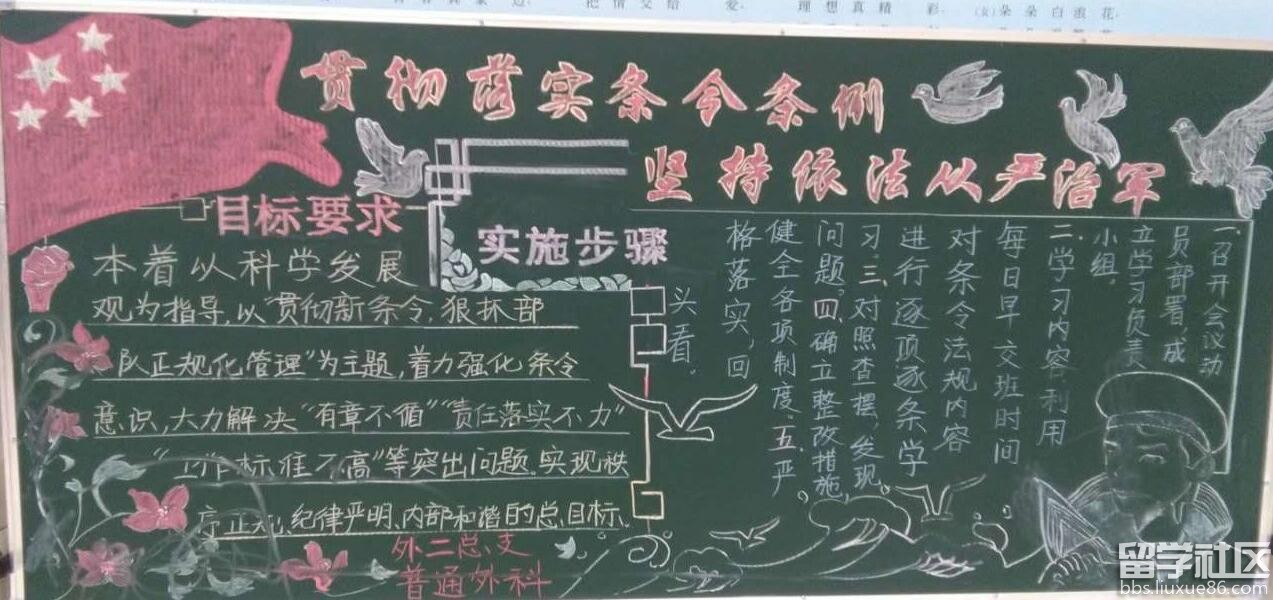 理想真精彩
把情交给
爱
(女)朵朵白浪花
贯彻落实条令条例
坚持依法从严治军
目标要求
本着以科学发展
观为指导，以“贯彻新条令，狠抓部
队正规化管理”为主题，着力强化条令
意识，大力解决“有章不循”“责任落实不力”
“工作标准不高”等突出问题。实现秩
序正规，纪律严明，内部和谐的总目标。
外二总支
普通外科
实施步骤
一.召开会议动
员部署，成
立学习负责
小组。
二学习内容利用
每日早交班时间
对条令法规内容
进行逐项逐条学
习。三.对照查摆，发现
问题。四.确立整改措施，
健全各项制度.五.严
格落实，回
头看。
留学社区
bbs.liuxue86.com